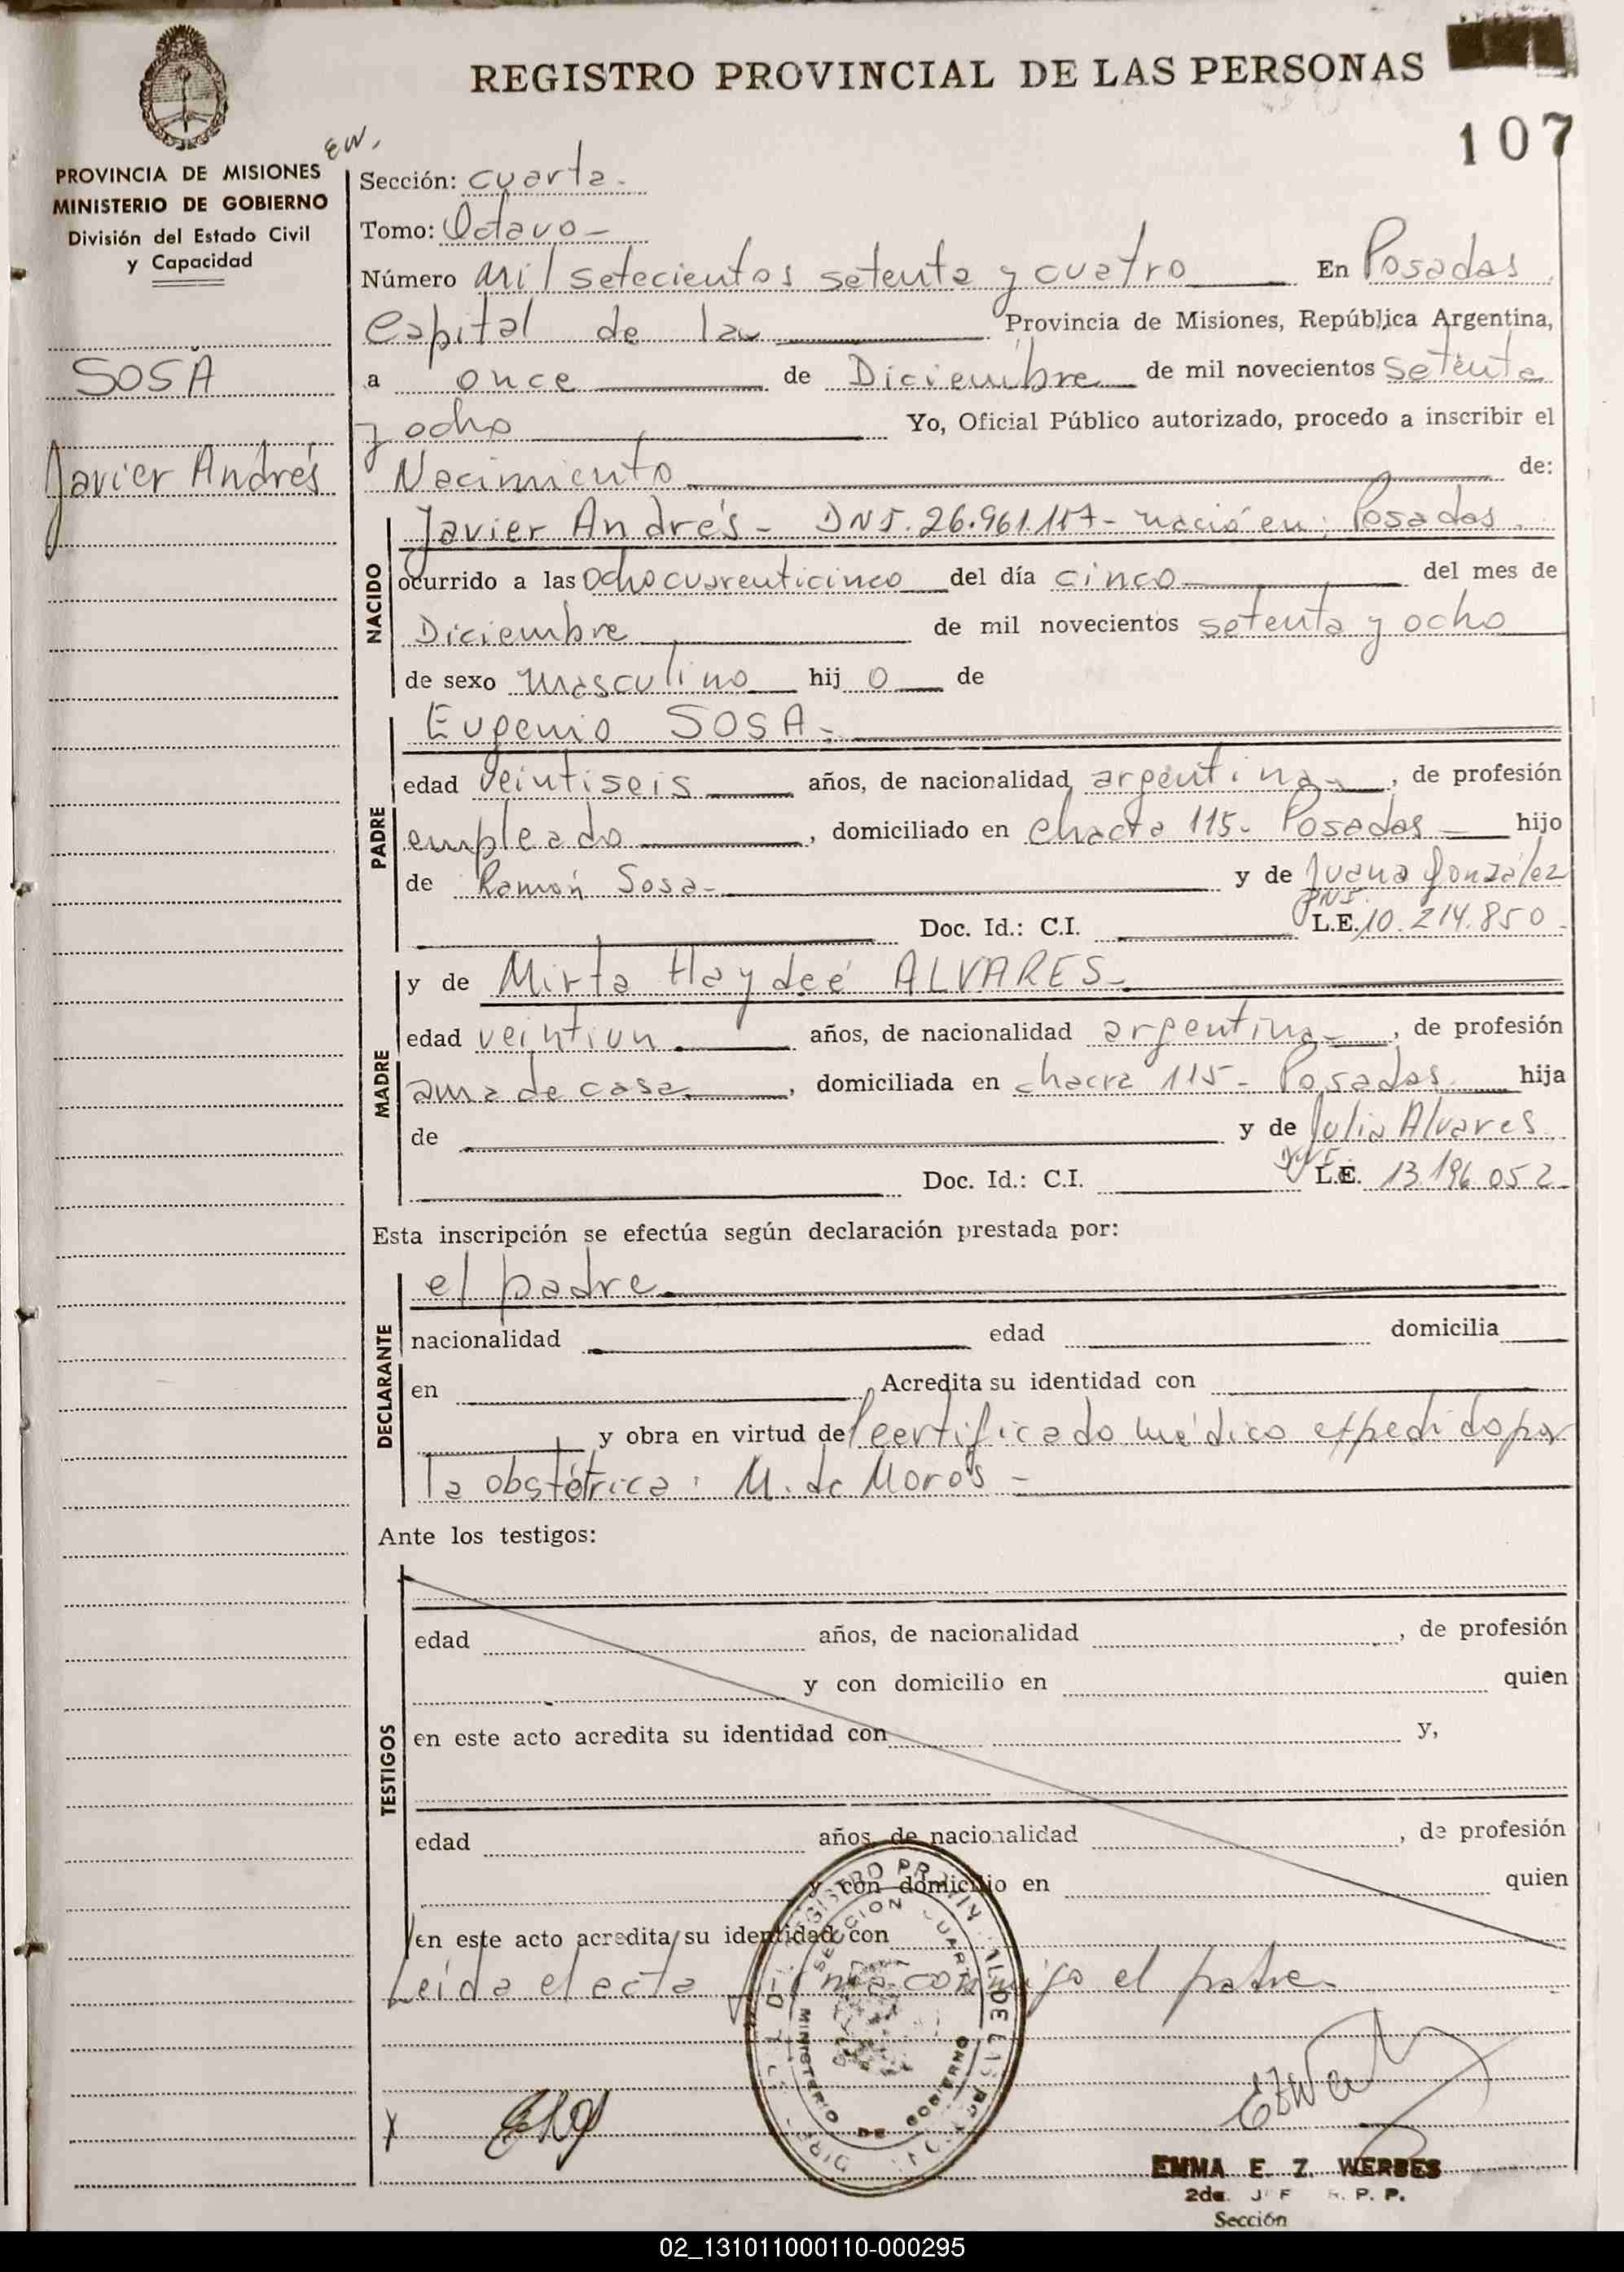 REGISTRO PROVINCIAL DE LAS PERSONAS
107
PROVINCIA DE MISIONES
MINISTERIO DE GOBIERNO
División del Estado Civil
y Capacidad
EW.
SOSA
Javier Andrés
Sección: cuarta.
Tomo: Octavo -
Número mil setecientos setenta y cuatro En Posadas
Capital de la Provincia de Misiones, República Argentina,
a once de Diciembre de mil novecientos setenta
y ocho Yo, Oficial Público autorizado, procedo a inscribir el
Nacimiento de:
NACIDO
Javier Andrés - DNI. 26.961.117 - nació en: Posadas.
ocurrido a las ocho cuarenticinco del día cinco del mes de
Diciembre de mil novecientos setenta y ocho
de sexo masculino hij o de
PADRE
Eugenio SOSA.-
edad veintiseis años, de nacionalidad argentina, de profesión
empleado, domiciliado en chacra 115. Posadas hijo
de Ramón Sosa- y de Juana González
DNI.
Doc. Id.: C.I. L.E. 10.214.850.
MADRE
y de Mirta Haydeé ALVARES.
edad veintiun años, de nacionalidad argentina, de profesión
ama de casa, domiciliada en chacra 115- Posadas hija
de y de Julia Alvares
DNI.
Doc. Id.: C.I. L.E. 13.196.052
Esta inscripción se efectúa según declaración prestada por:
DECLARANTE
el padre
nacionalidad edad domicilia
en Acredita su identidad con
y obra en virtud del certificado médico expedido por
la obstétrica: M. de Moros -
Ante los testigos:
TESTIGOS
edad años, de nacionalidad , de profesión
y con domicilio en quien
en este acto acredita su identidad con y,
edad años, de nacionalidad , de profesión
y con domicilio en quien
en este acto acredita su identidad con
Leída el acta firma conmigo el padre.
SECCION CUARTA
MINISTERIO DE GOBIERNO
EMMA E. Z. WERBES
2da. R. P. P.
Sección
02_131011000110-000295